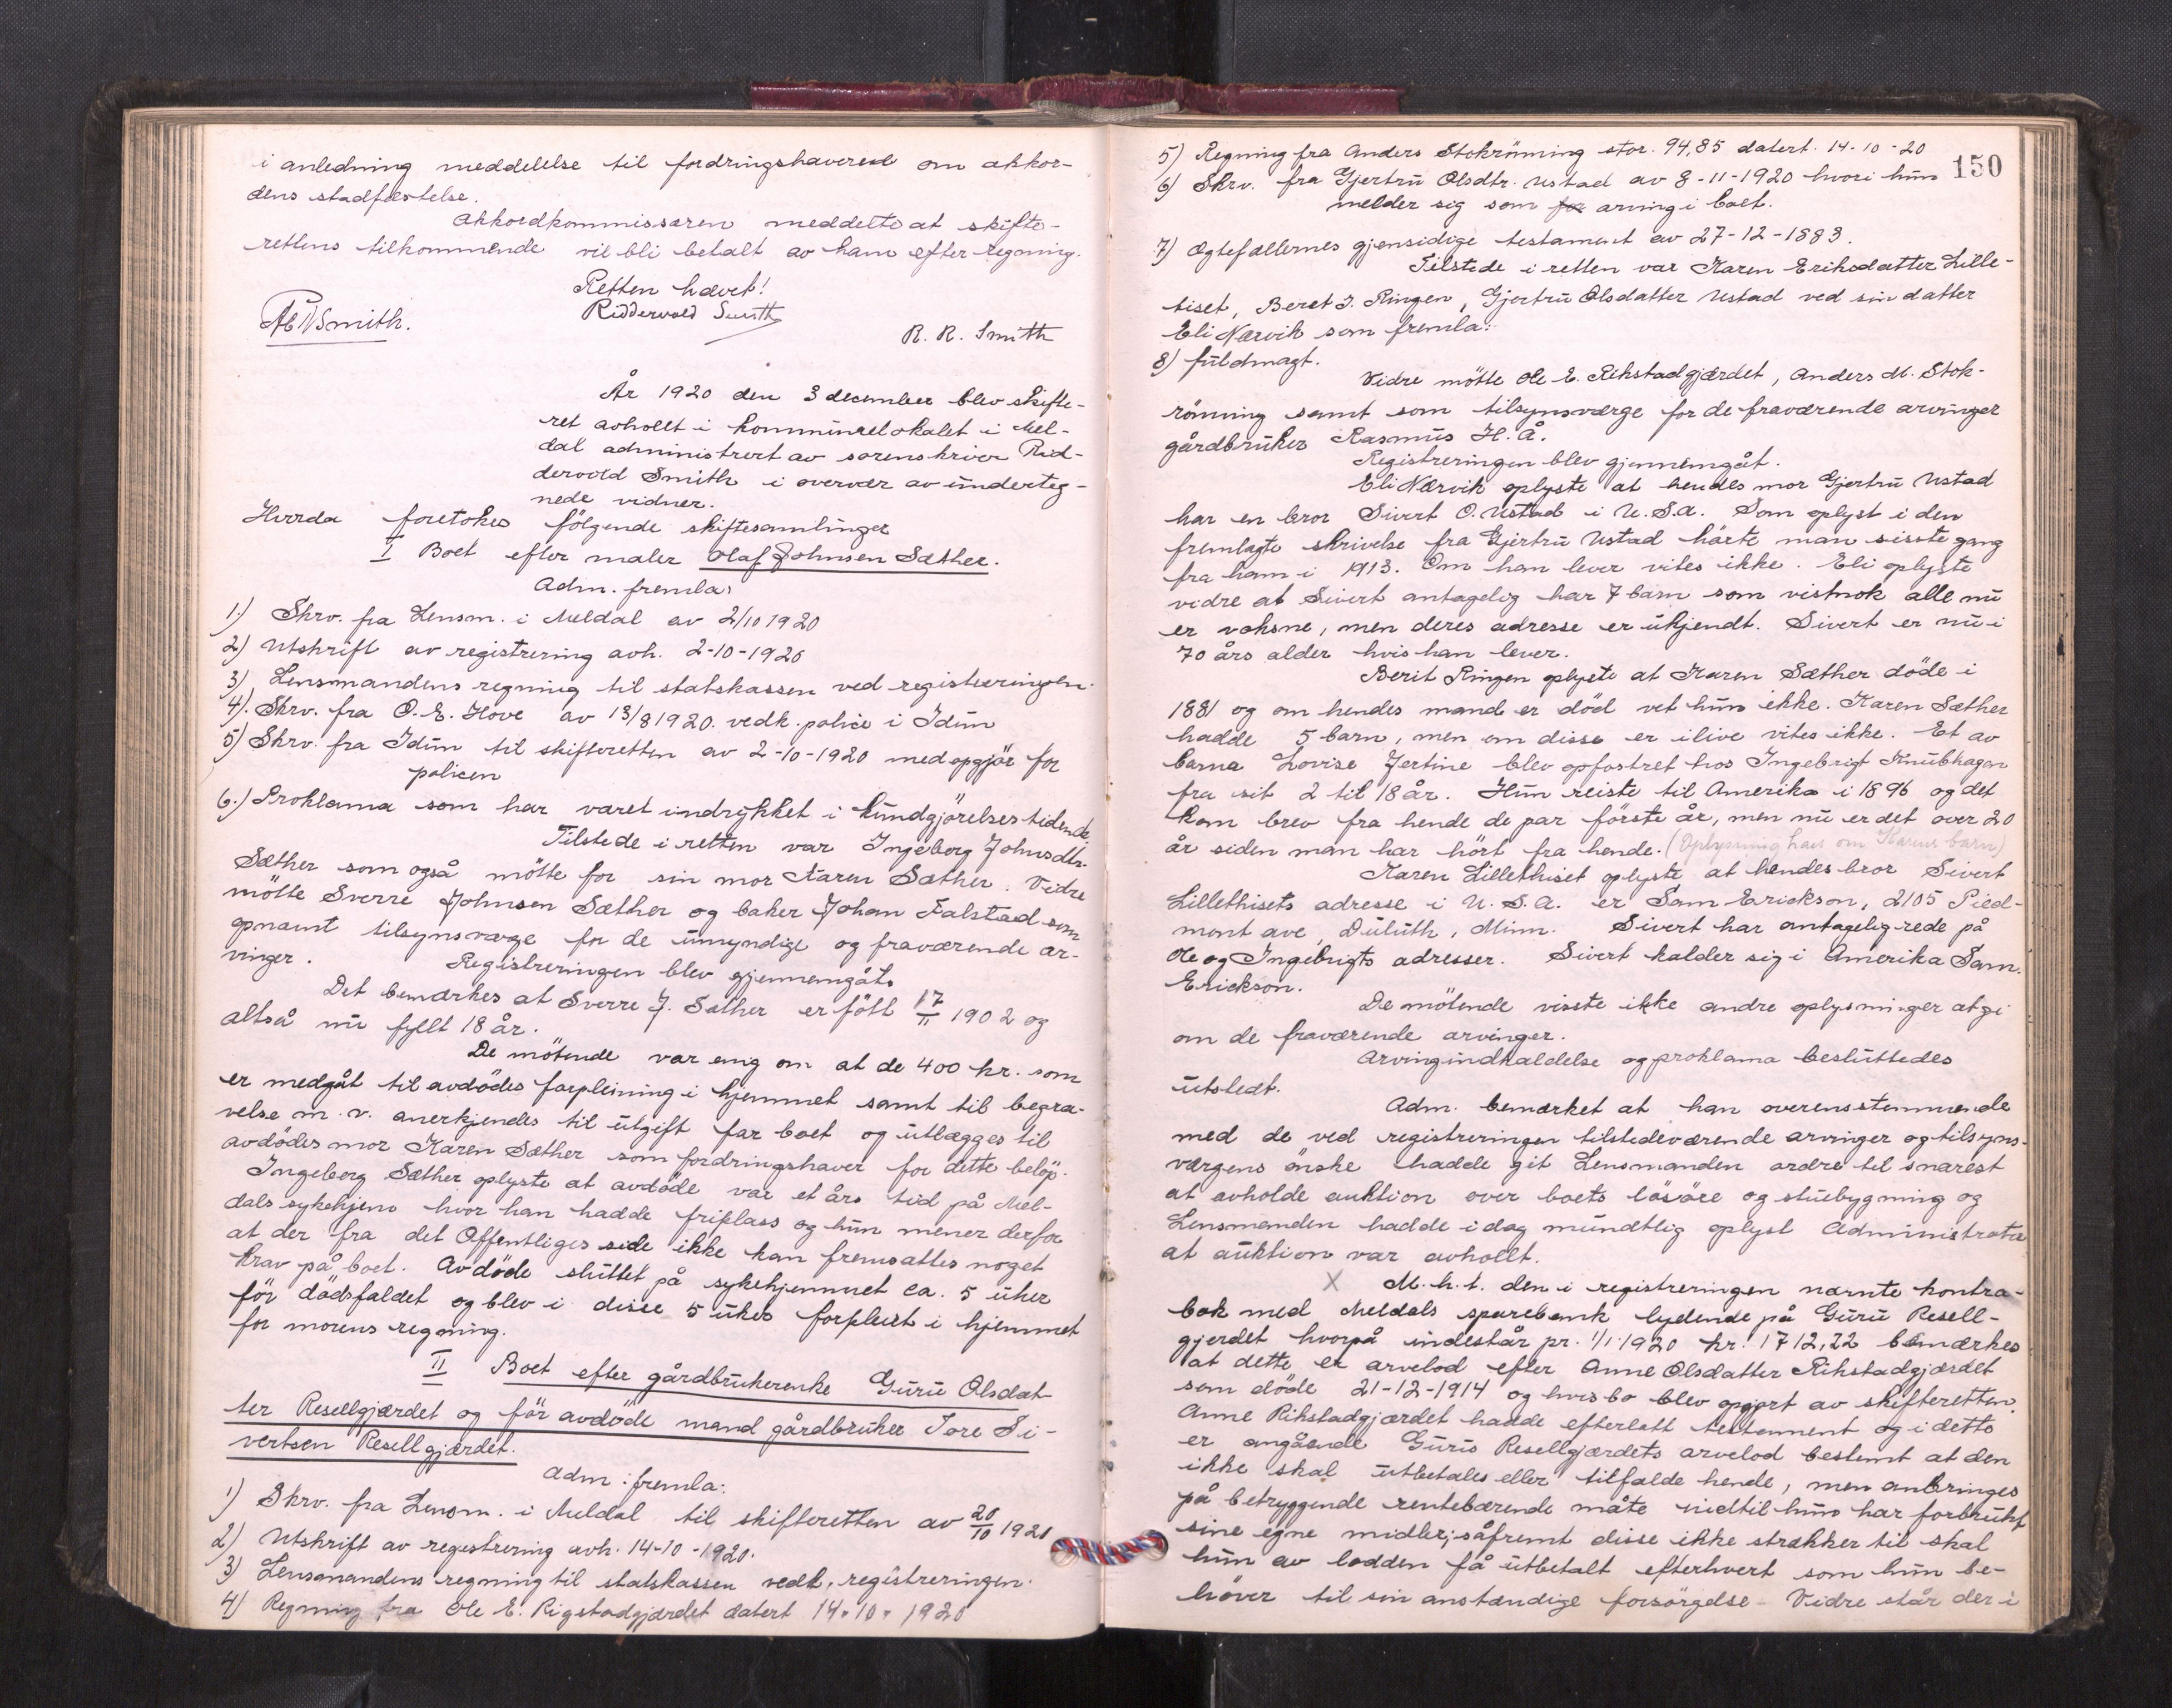 i anledning meddelelse til fordringshaverne om akkor-
dens stadfæstelse.
Akkordkommissæren meddelte at skifte-
rettens tilkommende vil bli betalt av ham efter regning.
Retten hævet!
Riddervold Smith
R. R. Smith
År 1920 den 3 december blev skifte-
ret avholt i kommunelokalet i Mel-
dal administrert av sorenskriver Rid-
dervold Smith i overvær av underteg-
nede vidner.
Hvorda foretokes følgende skiftesamlinger
I Boet efter maler Olaf Johnsen Sæther.
Adm. fremla:
1.) Skrv. fra Lensm. i Meldal av 2/10 1920
2) Utskrift av registrering avh. 2-10-1920
3) Lensmandens regning til statskassen ved registreringen.
4). Skrv. fra O. E. Hove av 13/8 1920. vedk. police i Idun
5) Skrv. fra Idun til skifteretten av 2-10-1920 med opgjør for
policen
6.) Proklama som har været indrykket i Kundgjørelsestidende
Tilstede i retten var Ingeborg Johnsdtr.
Sæther som også møtte for sin mor Karen Sæther. Vidre
møtte Sverre Johnsen Sæther og baker Johan Falstad som
opnævnt tilsynsværge for de umyndige og fraværende ar-
vinger.
Registreringen blev gjennemgåt.
Det bemærkes at Sverre J. Sæther er født 17/11 1902 og
altså nu fyllt 18 år.
De møtende var enig om at de 400 kr. som
er medgåt til avdødes forpleining i hjemmet samt til begra-
velse m. v. anerkjendes til utgift for boet og utlægges til
avdødes mor Karen Sæther som fordringshaver for dette beløp.
Ingeborg Sæther oplyste at avdøde var et års tid på Mel-
dals sykehjem hvor han hadde friplass og hun mener derfor
at der fra det Offentliges side ikke kan fremsættes noget
krav på boet. Avdøde sluttet på sykehjemmet ca. 5 uker
før dødsfaldet og blev i disse 5 uker forpleiet i hjemmet
for morens regning.
II Boet efter gårdbrukerenke Guru Olsdat-
ter Resellgjærdet og før avdøde mand gårdbruker Tore Si-
vertsen Resellgjærdet.
Adm: fremla:
1) Skrv. fra Lensm. i Meldal til skifteretten av 20/10 1920
2) Utskrift av registrering avh. 14-10-1920.
3) Lensmandens regning til statskassen vedk. registreringen.
4) Regning fra Ole E. Rigstadgjærdet datert 14-10-1920
150
5) Regning fra Anders Stokrønning stor. 94,85 datert. 14-10-20
6) Skrv. fra Gjertru Olsdtr. Ustad av 8-11-1920 hvori hun
melder sig som arving i boet.
7) Ægtefællernes gjensidige testament av 27-12-1883.
Tilstede i retten var Karen Eriksdatter Lille-
tiset, Beret J. Ringen, Gjertru Olsdatter Ustad ved sin datter
Eli Nærvik som fremla:
8) fuldmagt.
Vidre møtte Ole E. Rikstadgjærdet, Anders M. Stok-
rønning samt som tilsynsværge for de fraværende arvinger
gårdbruker Rasmus H. Å.
Registreringen blev gjennemgåt.
Eli Nærvik oplyste at hendes mor Gjertru Ustad
har en bror Sivert O. Ustad i U.S.A. Som oplyst i den
fremlagte skrivelse fra Gjertru Ustad hørte man sisste gang
fra ham i 1913. Om han lever vites ikke. Eli oplyste
vidre at Sivert antagelig har 7 barn som vistnok alle nu
er voksne, men deres adresse er ukjendt. Sivert er nu i
70 års alder hvis han lever.
Berit Ringen oplyste at Karen Sæther døde i
1881 og om hendes mand er død vet hun ikke. Karen Sæther
hadde 5 barn, men om disse er ilive vites ikke. Et av
barna Lovise Jertine blev opfostret hos Ingebrigt Knubhagen
fra sit 2 til 18 år. Hun reiste til Amerika i 1896 og det
kom brev fra hende de par første år, men nu er det over 20
år siden man har hørt fra hende. (Oplysning haes om Karens barn)
Karen Lillethiset oplyste at hendes bror Sivert
Lillethisets adresse i U.S.A. er Sam Erickson, 2105 Pied-
mont ave, Duluth, Minn. Sivert har antagelig rede på
Ole og Ingebrigts adresser. Sivert kalder sig i Amerika Sam.
Erickson.
De møtende visste ikke andre oplysninger at gi
om de fraværende arvinger.
Arvingindkaldelse og proklama besluttedes
utstedt.
Adm. bemærket at han overensstemmende
med de ved registreringen tilstedeværende arvinger og tilsyns-
værgens ønske hadde git Lensmanden ordre til snarest
at avholde auktion over boets løsøre og stuebygning og
Lensmanden hadde idag mundtlig oplyst Administrator
at auktion var avholt.
X M.h.t. den i registreringen nævnte kontra-
bok med Meldals sparebank lydende på Guru Resell-
gjerdet hvorpå indestår pr. 1/1 1920 kr. 1712,22 bemærkes
at dette er arvelod efter Anne Olsdatter Rikstadgjærdet
som døde 21-12-1914 og hvis bo blev opgjort av skifteretten.
Anne Rikstadgjærdet hadde efterlatt testament og i dette
er angående Gurus Resellgjærdets arvelod bestemt at den
ikke skal utbetales eller tilfalde hende, men anbringes
på betryggende rentebærende måte indtil hun har forbrukt
sine egne midler; såfremt disse ikke strækker til skal
hun av lodden få utbetalt efterhvert som hun be-
høver til sin anstændige forsørgelse - Vidre står der i